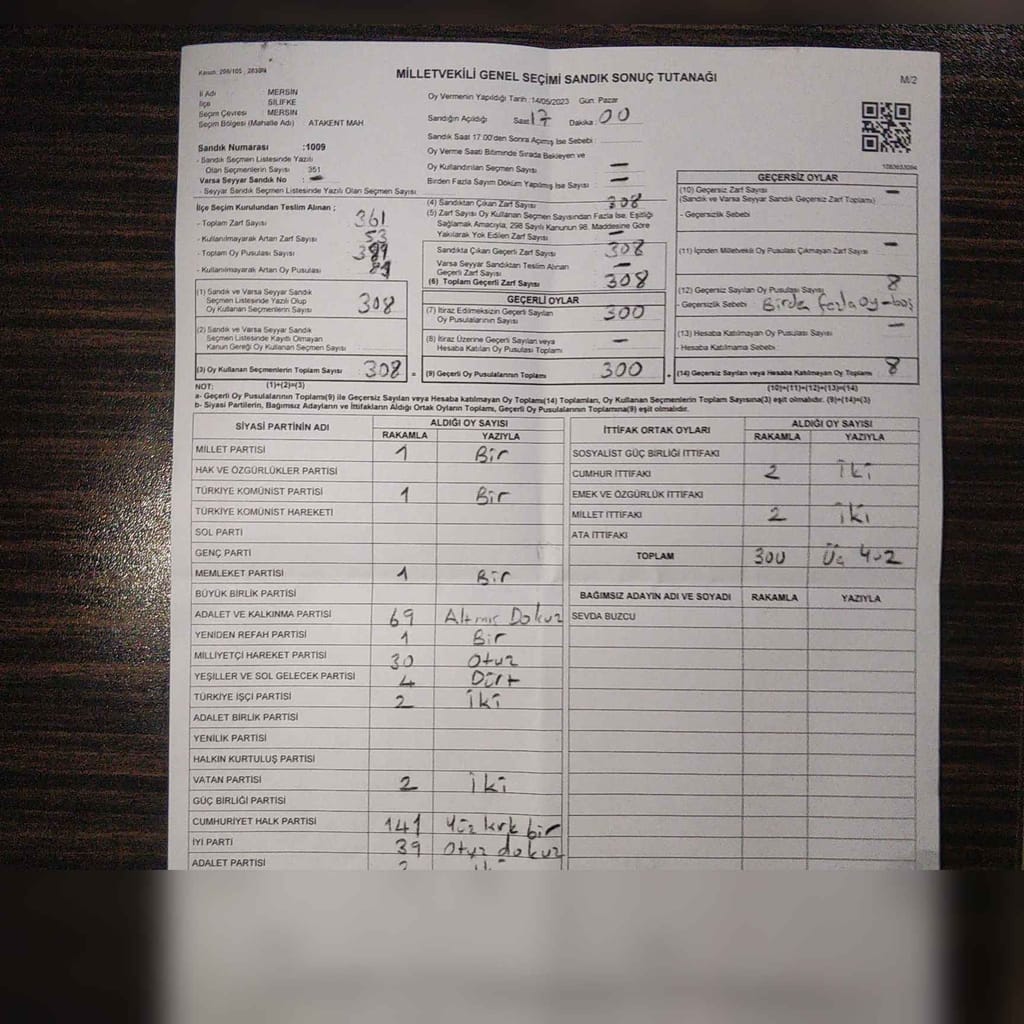 Kanun: 298/105 , 2839/N
MİLLETVEKİLİ GENEL SEÇİMİ SANDIK SONUÇ TUTANAĞI
M/2
İl Adı MERSİN
İlçe SİLİFKE
Seçim Çevresi MERSİN
Seçim Bölgesi (Mahalle Adı) ATAKENT MAH
Oy Vermenin Yapıldığı Tarih :14/05/2023 Gün: Pazar
Sandığın Açıldığı Saat 17 Dakika: 00
Sandık Saat 17:00'den Sonra Açılmış İse Sebebi :
Oy Verme Saati Bitiminde Sırada Bekleyen ve
Oy Kullandırılan Seçmen Sayısı —
Birden Fazla Sayım Döküm Yapılmış İse Sayısı —
Sandık Numarası :1009
- Sandık Seçmen Listesinde Yazılı
Olan Seçmenlerin Sayısı 351
Varsa Seyyar Sandık No : —
- Seyyar Sandık Seçmen Listesinde Yazılı Olan Seçmen Sayısı
İlçe Seçim Kurulundan Teslim Alınan ;
- Toplam Zarf Sayısı 361
- Kullanılmayarak Artan Zarf Sayısı 53
- Toplam Oy Pusulası Sayısı
- Kullanılmayarak Artan Oy Pusulası
(1) Sandık ve Varsa Seyyar Sandık
Seçmen Listesinde Yazılı Olup
Oy Kullanan Seçmenlerin Sayısı 308
(2) Sandık ve Varsa Seyyar Sandık
Seçmen Listesinde Kayıtlı Olmayan
Kanun Gereği Oy Kullanan Seçmen Sayısı
(3) Oy Kullanan Seçmenlerin Toplam Sayısı 308 =
(4) Sandıktan Çıkan Zarf Sayısı 308
(5) Zarf Sayısı Oy Kullanan Seçmen Sayısından Fazla İse, Eşitliği
Sağlamak Amacıyla, 298 Sayılı Kanunun 98. Maddesine Göre
Yakılarak Yok Edilen Zarf Sayısı —
Sandıkta Çıkan Geçerli Zarf Sayısı 308
Varsa Seyyar Sandıktan Teslim Alınan
Geçerli Zarf Sayısı —
(6) Toplam Geçerli Zarf Sayısı 308
GEÇERLİ OYLAR
(7) İtiraz Edilmeksizin Geçerli Sayılan
Oy Pusulalarının Sayısı 300
(8) İtiraz Üzerine Geçerli Sayılan veya
Hesaba Katılan Oy Pusulası Toplamı —
(9) Geçerli Oy Pusulalarının Toplamı 300 +
GEÇERSİZ OYLAR
(10) Geçersiz Zarf Sayısı —
(Sandık ve Varsa Seyyar Sandık Geçersiz Zarf Toplamı)
- Geçersizlik Sebebi
(11) İçinden Milletvekili Oy Pusulası Çıkmayan Zarf Sayısı —
(12) Geçersiz Sayılan Oy Pusulası Sayısı 8
- Geçersizlik Sebebi Birden fazla oy-boş
(13) Hesaba Katılmayan Oy Pusulası Sayısı —
- Hesaba Katılmama Sebebi
(14) Geçersiz Sayılan veya Hesaba Katılmayan Oy Toplamı 8
NOT: (1)+(2)=(3) (10)+(11)+(12)+(13)=(14)
a- Geçerli Oy Pusulalarının Toplamı(9) ile Geçersiz Sayılan veya Hesaba Katılmayan Oy Toplamı(14) Toplamları, Oy Kullanan Seçmenlerin Toplam Sayısına(3) eşit olmalıdır. (9)+(14)=(3)
b- Siyasi Partilerin, Bağımsız Adayların ve İttifakların Aldığı Ortak Oyların Toplamı, Geçerli Oy Pusulalarının Toplamına(9) eşit olmalıdır.
SİYASİ PARTİNİN ADI ALDIĞI OY SAYISI
RAKAMLA YAZIYLA
MİLLET PARTİSİ 1 Bir
HAK VE ÖZGÜRLÜKLER PARTİSİ
TÜRKİYE KOMÜNİST PARTİSİ 1 Bir
TÜRKİYE KOMÜNİST HAREKETİ
SOL PARTİ
GENÇ PARTİ
MEMLEKET PARTİSİ 1 Bir
BÜYÜK BİRLİK PARTİSİ
ADALET VE KALKINMA PARTİSİ 69 Altmış Dokuz
YENİDEN REFAH PARTİSİ 1 Bir
MİLLİYETÇİ HAREKET PARTİSİ 30 Otuz
YEŞİLLER VE SOL GELECEK PARTİSİ 4 Dört
TÜRKİYE İŞÇİ PARTİSİ 2 İki
ADALET BİRLİK PARTİSİ
YENİLİK PARTİSİ
HALKIN KURTULUŞ PARTİSİ
VATAN PARTİSİ 2 İki
GÜÇ BİRLİĞİ PARTİSİ
CUMHURİYET HALK PARTİSİ 141 Yüz kırk bir
İYİ PARTİ 39 Otuz dokuz
ADALET PARTİSİ
İTTİFAK ORTAK OYLARI ALDIĞI OY SAYISI
RAKAMLA YAZIYLA
SOSYALİST GÜÇ BİRLİĞİ İTTİFAKI
CUMHUR İTTİFAKI 2 İki
EMEK VE ÖZGÜRLÜK İTTİFAKI
MİLLET İTTİFAKI 2 İki
ATA İTTİFAKI
TOPLAM 300 Üç Yüz
BAĞIMSIZ ADAYIN ADI VE SOYADI RAKAMLA YAZIYLA
SEVDA BUZCU